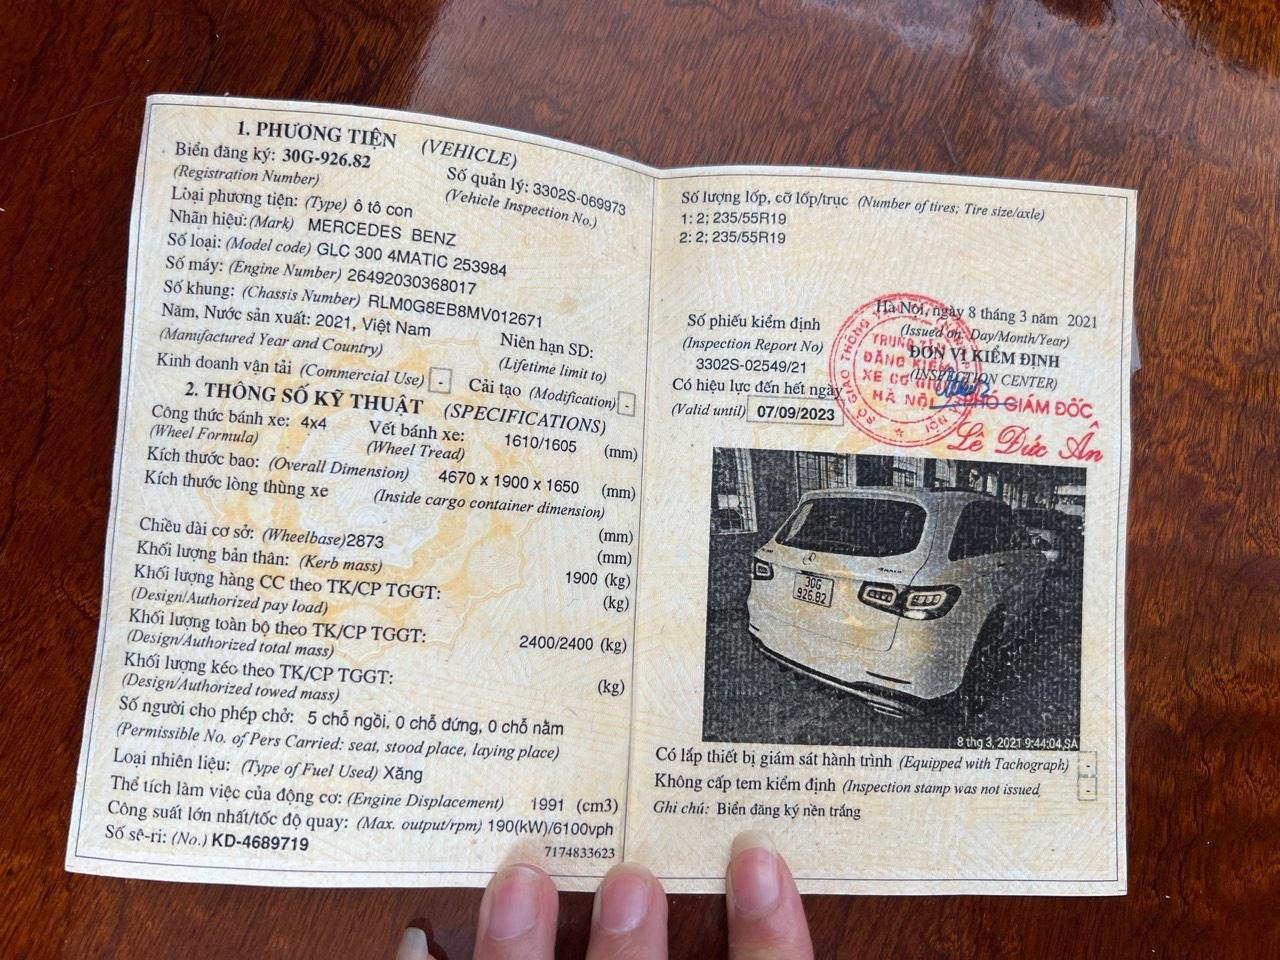 1. PHƯƠNG TIỆN (VEHICLE)
Biển đăng ký: 30G-926.82
(Registration Number)
Số quản lý: 3302S-069973
(Vehicle Inspection No.)
Loại phương tiện: (Type) ô tô con
Nhãn hiệu: (Mark) MERCEDES BENZ
Số loại: (Model code) GLC 300 4MATIC 253984
Số máy: (Engine Number) 26492030368017
Số khung: (Chassis Number) RLM0G8EB8MV012671
Năm, Nước sản xuất: 2021, Việt Nam
(Manufactured Year and Country)
Niên hạn SD:
(Lifetime limit to)
Kinh doanh vận tải (Commercial Use) - Cải tạo (Modification) -
2. THÔNG SỐ KỸ THUẬT (SPECIFICATIONS)
Công thức bánh xe: 4x4
(Wheel Formula)
Vết bánh xe: 1610/1605 (mm)
(Wheel Tread)
Kích thước bao: (Overall Dimension) 4670 x 1900 x 1650 (mm)
Kích thước lòng thùng xe (Inside cargo container dimension)
(mm)
Chiều dài cơ sở: (Wheelbase)2873 (mm)
Khối lượng bản thân: (Kerb mass) 1900 (kg)
Khối lượng hàng CC theo TK/CP TGGT: (kg)
(Design/Authorized pay load)
Khối lượng toàn bộ theo TK/CP TGGT: 2400/2400 (kg)
(Design/Authorized total mass)
Khối lượng kéo theo TK/CP TGGT: (kg)
(Design/Authorized towed mass)
Số người cho phép chở: 5 chỗ ngồi, 0 chỗ đứng, 0 chỗ nằm
(Permissible No. of Pers Carried: seat, stood place, laying place)
Loại nhiên liệu: (Type of Fuel Used) Xăng
Thể tích làm việc của động cơ: (Engine Displacement) 1991 (cm3)
Công suất lớn nhất/tốc độ quay: (Max. output/rpm) 190(kW)/6100vph
Số sê-ri: (No.) KD-4689719
7174833623
Số lượng lốp, cỡ lốp/trục (Number of tires; Tire size/axle)
1: 2; 235/55R19
2: 2; 235/55R19
Hà Nội, ngày 8 tháng 3 năm 2021
(Issued on: Day/Month/Year)
Số phiếu kiểm định
(Inspection Report No)
3302S-02549/21
ĐƠN VỊ KIỂM ĐỊNH
(INSPECTION CENTER)
Có hiệu lực đến hết ngày
(Valid until) 07/09/2023
TRUNG TÂM
ĐĂNG KIỂM
XE CƠ GIỚI
HÀ NỘI
PHÓ GIÁM ĐỐC
Lê Đức Ân
30G
926.82
8 thg 3, 2021 9:44:04 SA
Có lắp thiết bị giám sát hành trình (Equipped with Tachograph) -
Không cấp tem kiểm định (Inspection stamp was not issued, -
Ghi chú: Biển đăng ký nền trắng